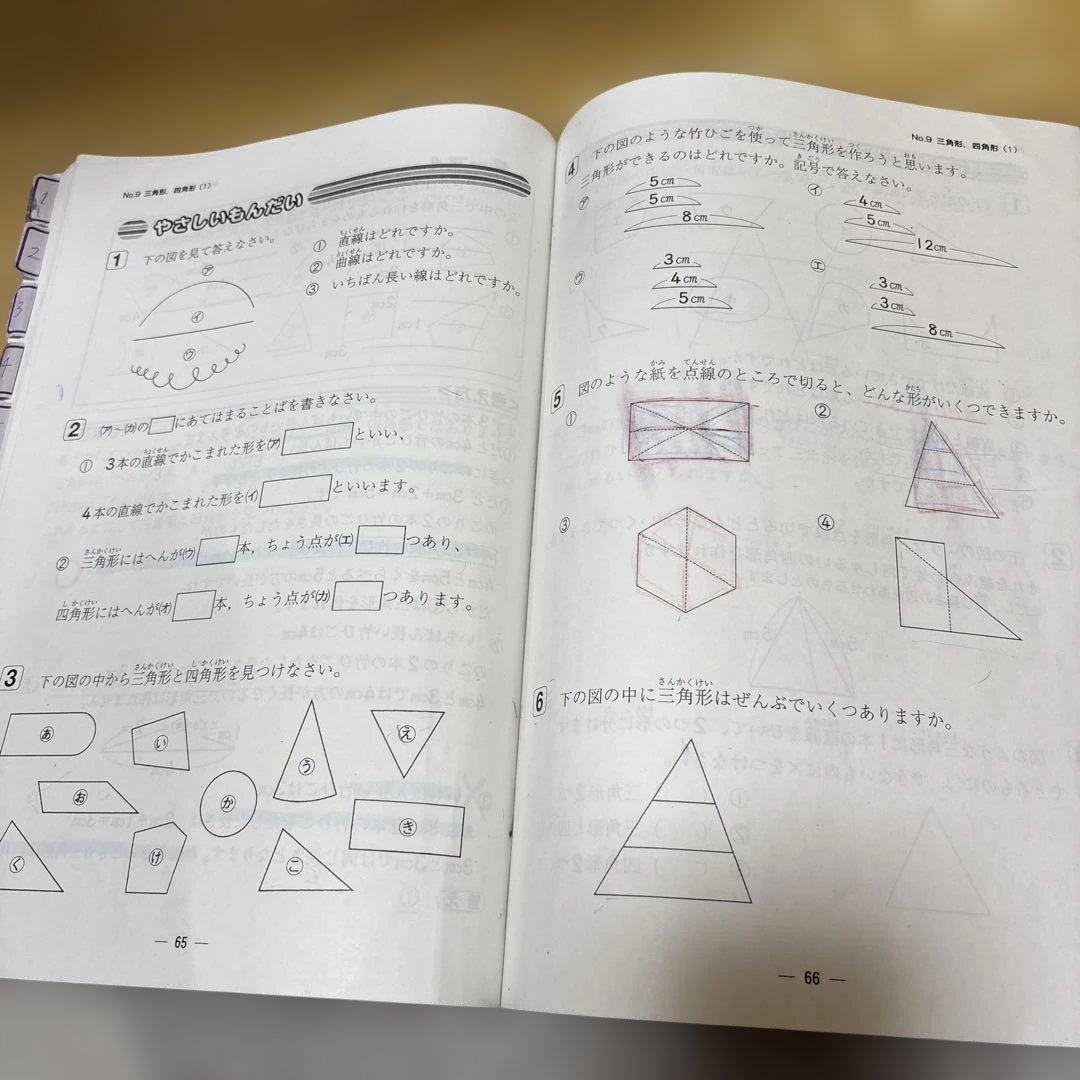 No.9 三角形，四角形（1）
やさしいもんだい
1 下の図を見て答えなさい。
① 直線はどれですか。
② 曲線はどれですか。
③ いちばん長い線はどれですか。
㋐
㋑
㋒
2 ㋐～㋕の□にあてはまることばを書きなさい。
① 3本の直線でかこまれた形を㋐□といい、
4本の直線でかこまれた形を㋑□といいます。
② 三角形にはへんが㋒□本，ちょう点が㋓□つあり、
四角形にはへんが㋔□本，ちょう点が㋕□つあります。
3 下の図の中から三角形と四角形を見つけなさい。
あ い う え
お か き
く け こ
— 65 —
No.9 三角形，四角形（1）
4 下の図のような竹ひごを使って三角形を作ろうと思います。
三角形ができるのはどれですか。記号で答えなさい。
㋐ 5cm 5cm 8cm
㋑ 4cm 5cm 12cm
㋒ 3cm 4cm 5cm
㋓ 3cm 3cm 8cm
5 図のような紙を点線のところで切ると、どんな形がいくつできますか。
① ②
③ ④
6 下の図の中に三角形はぜんぶでいくつありますか。
— 66 —
1
2
3
4